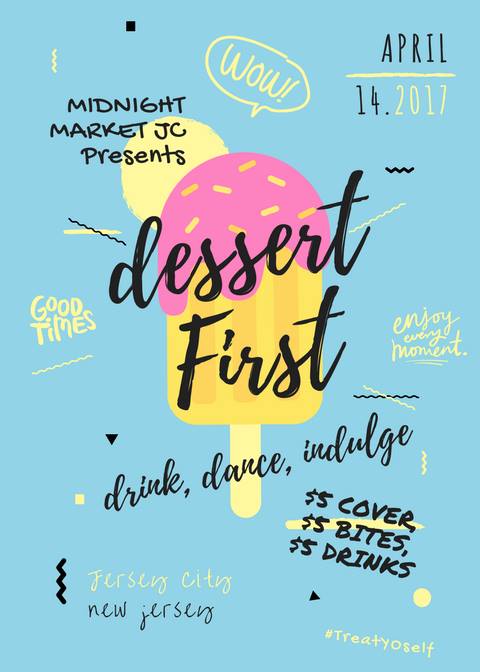 WOW!
APRIL
14.2017
MIDNIGHT
MARKET JC
Presents
dessert
First
GOOD
TIMES
enjoy
every
moment.
drink, dance, indulge
$5 COVER,
$5 BITES,
$5 DRINKS
Jersey City
new jersey
#TreatYoself